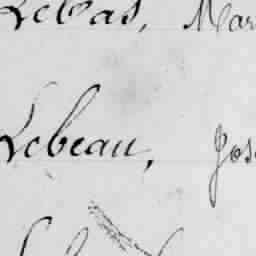 Lebas, Mar
Lebeau, Jos